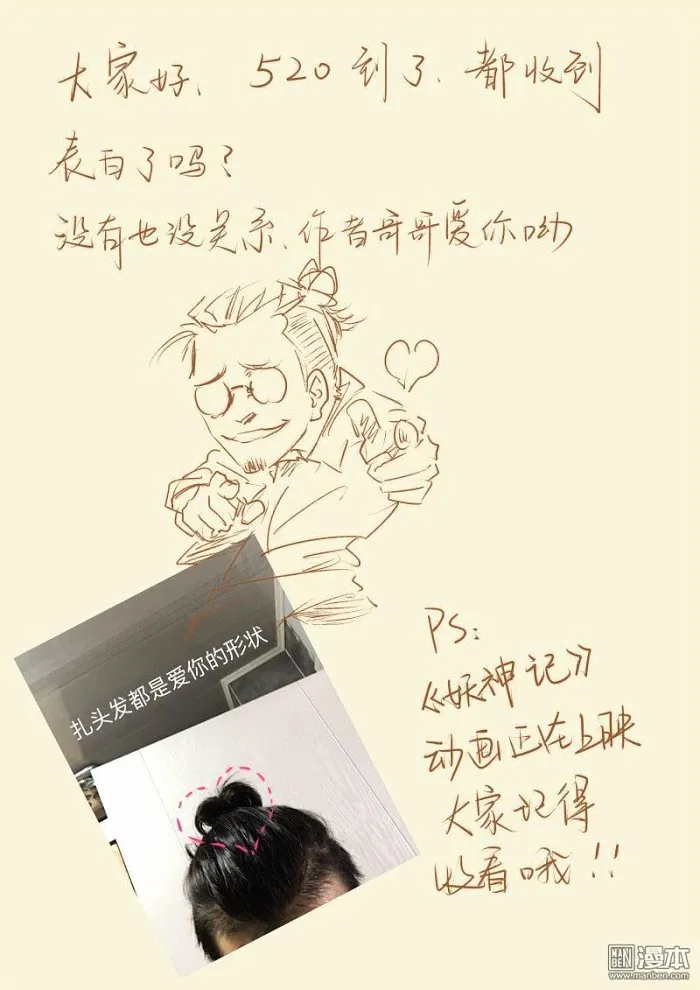 大家好、520到了、都收到
表白了吗?
没有也没关系、作者哥哥爱你呦
扎头发都是爱你的形状
PS:
《妖神记》
动画正在上映
大家记得
收看哦!!
MAN
BEN
漫本
www.manben.com